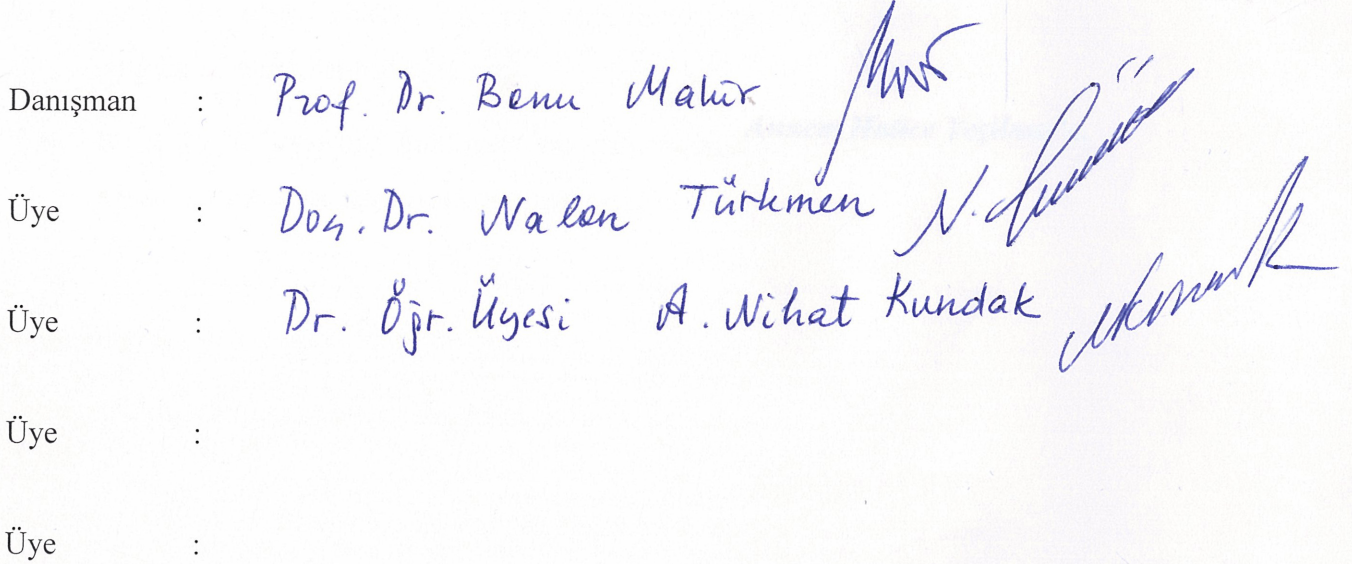 Danışman : Prof. Dr. Banu Mahir
Üye : Doç. Dr. Nalan Türkmen
Üye : Dr. Öğr. Üyesi A. Nihat Kundak
Üye :
Üye :